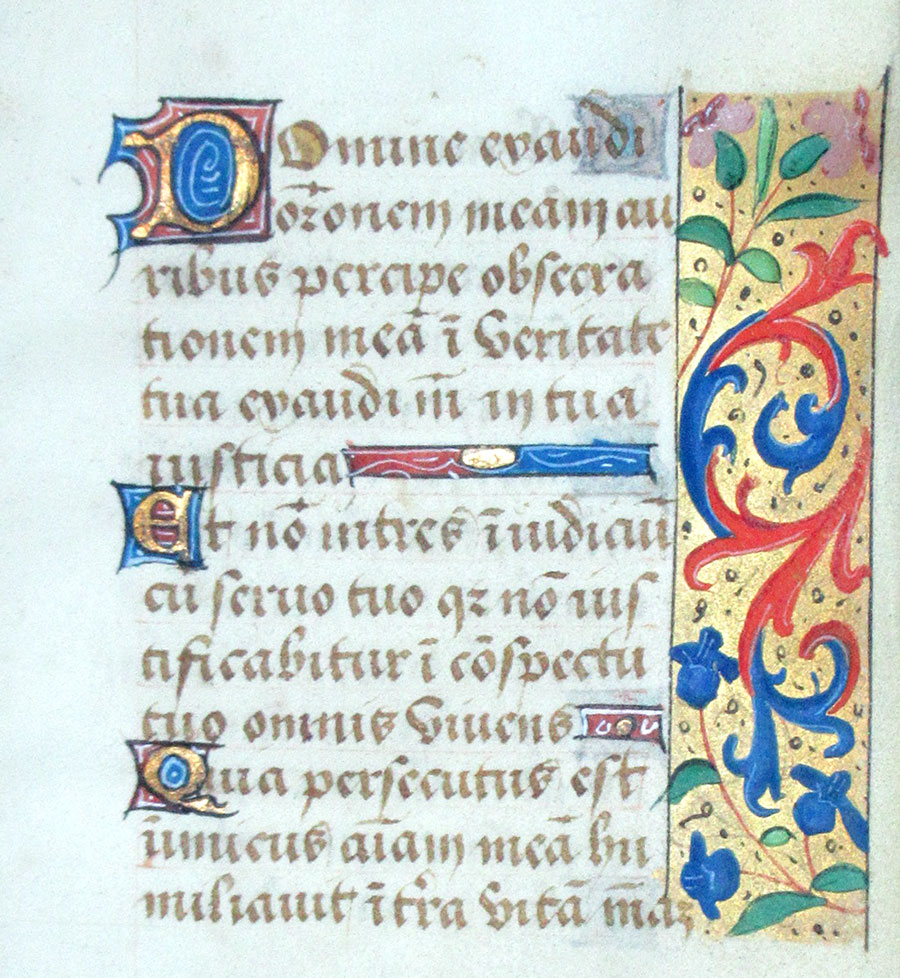 Domine exaudi
or̃onem meam au
ribus percipe obsecra
tionem meā ī veritate
tua exaudi m̄ in tua
iusticia
Et nō intres ī iudiciū
cū seruo tuo qz nō ius
tificabitur ī cōspectu
tuo omnis viuens
Quia persecutus est
inimicus aīam meā hu
miliauit ī tr̄a vitā mā